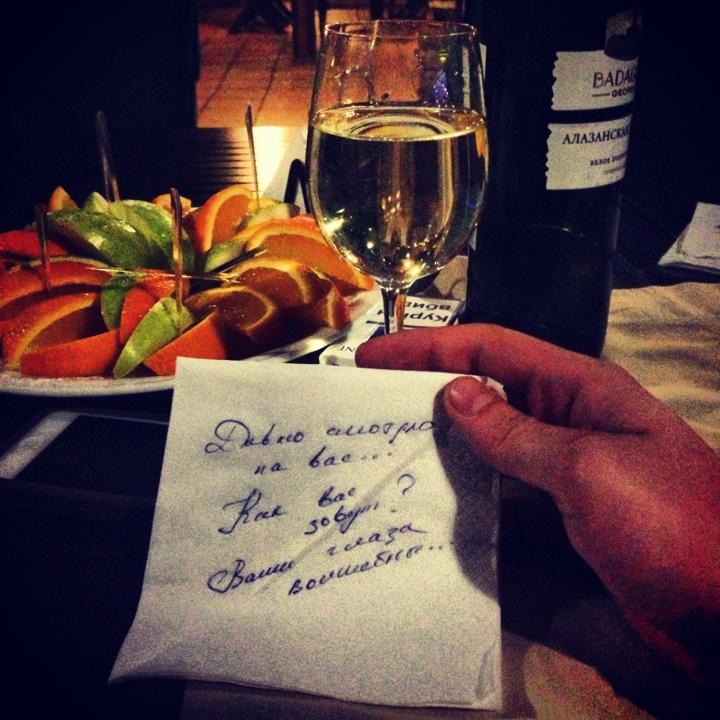 BADAG
GEOR
АЛАЗАНСКАЯ
БЕЛОЕ
Давно смотрю
на вас...
Как вас
зовут?
Ваши глаза
волшебны...